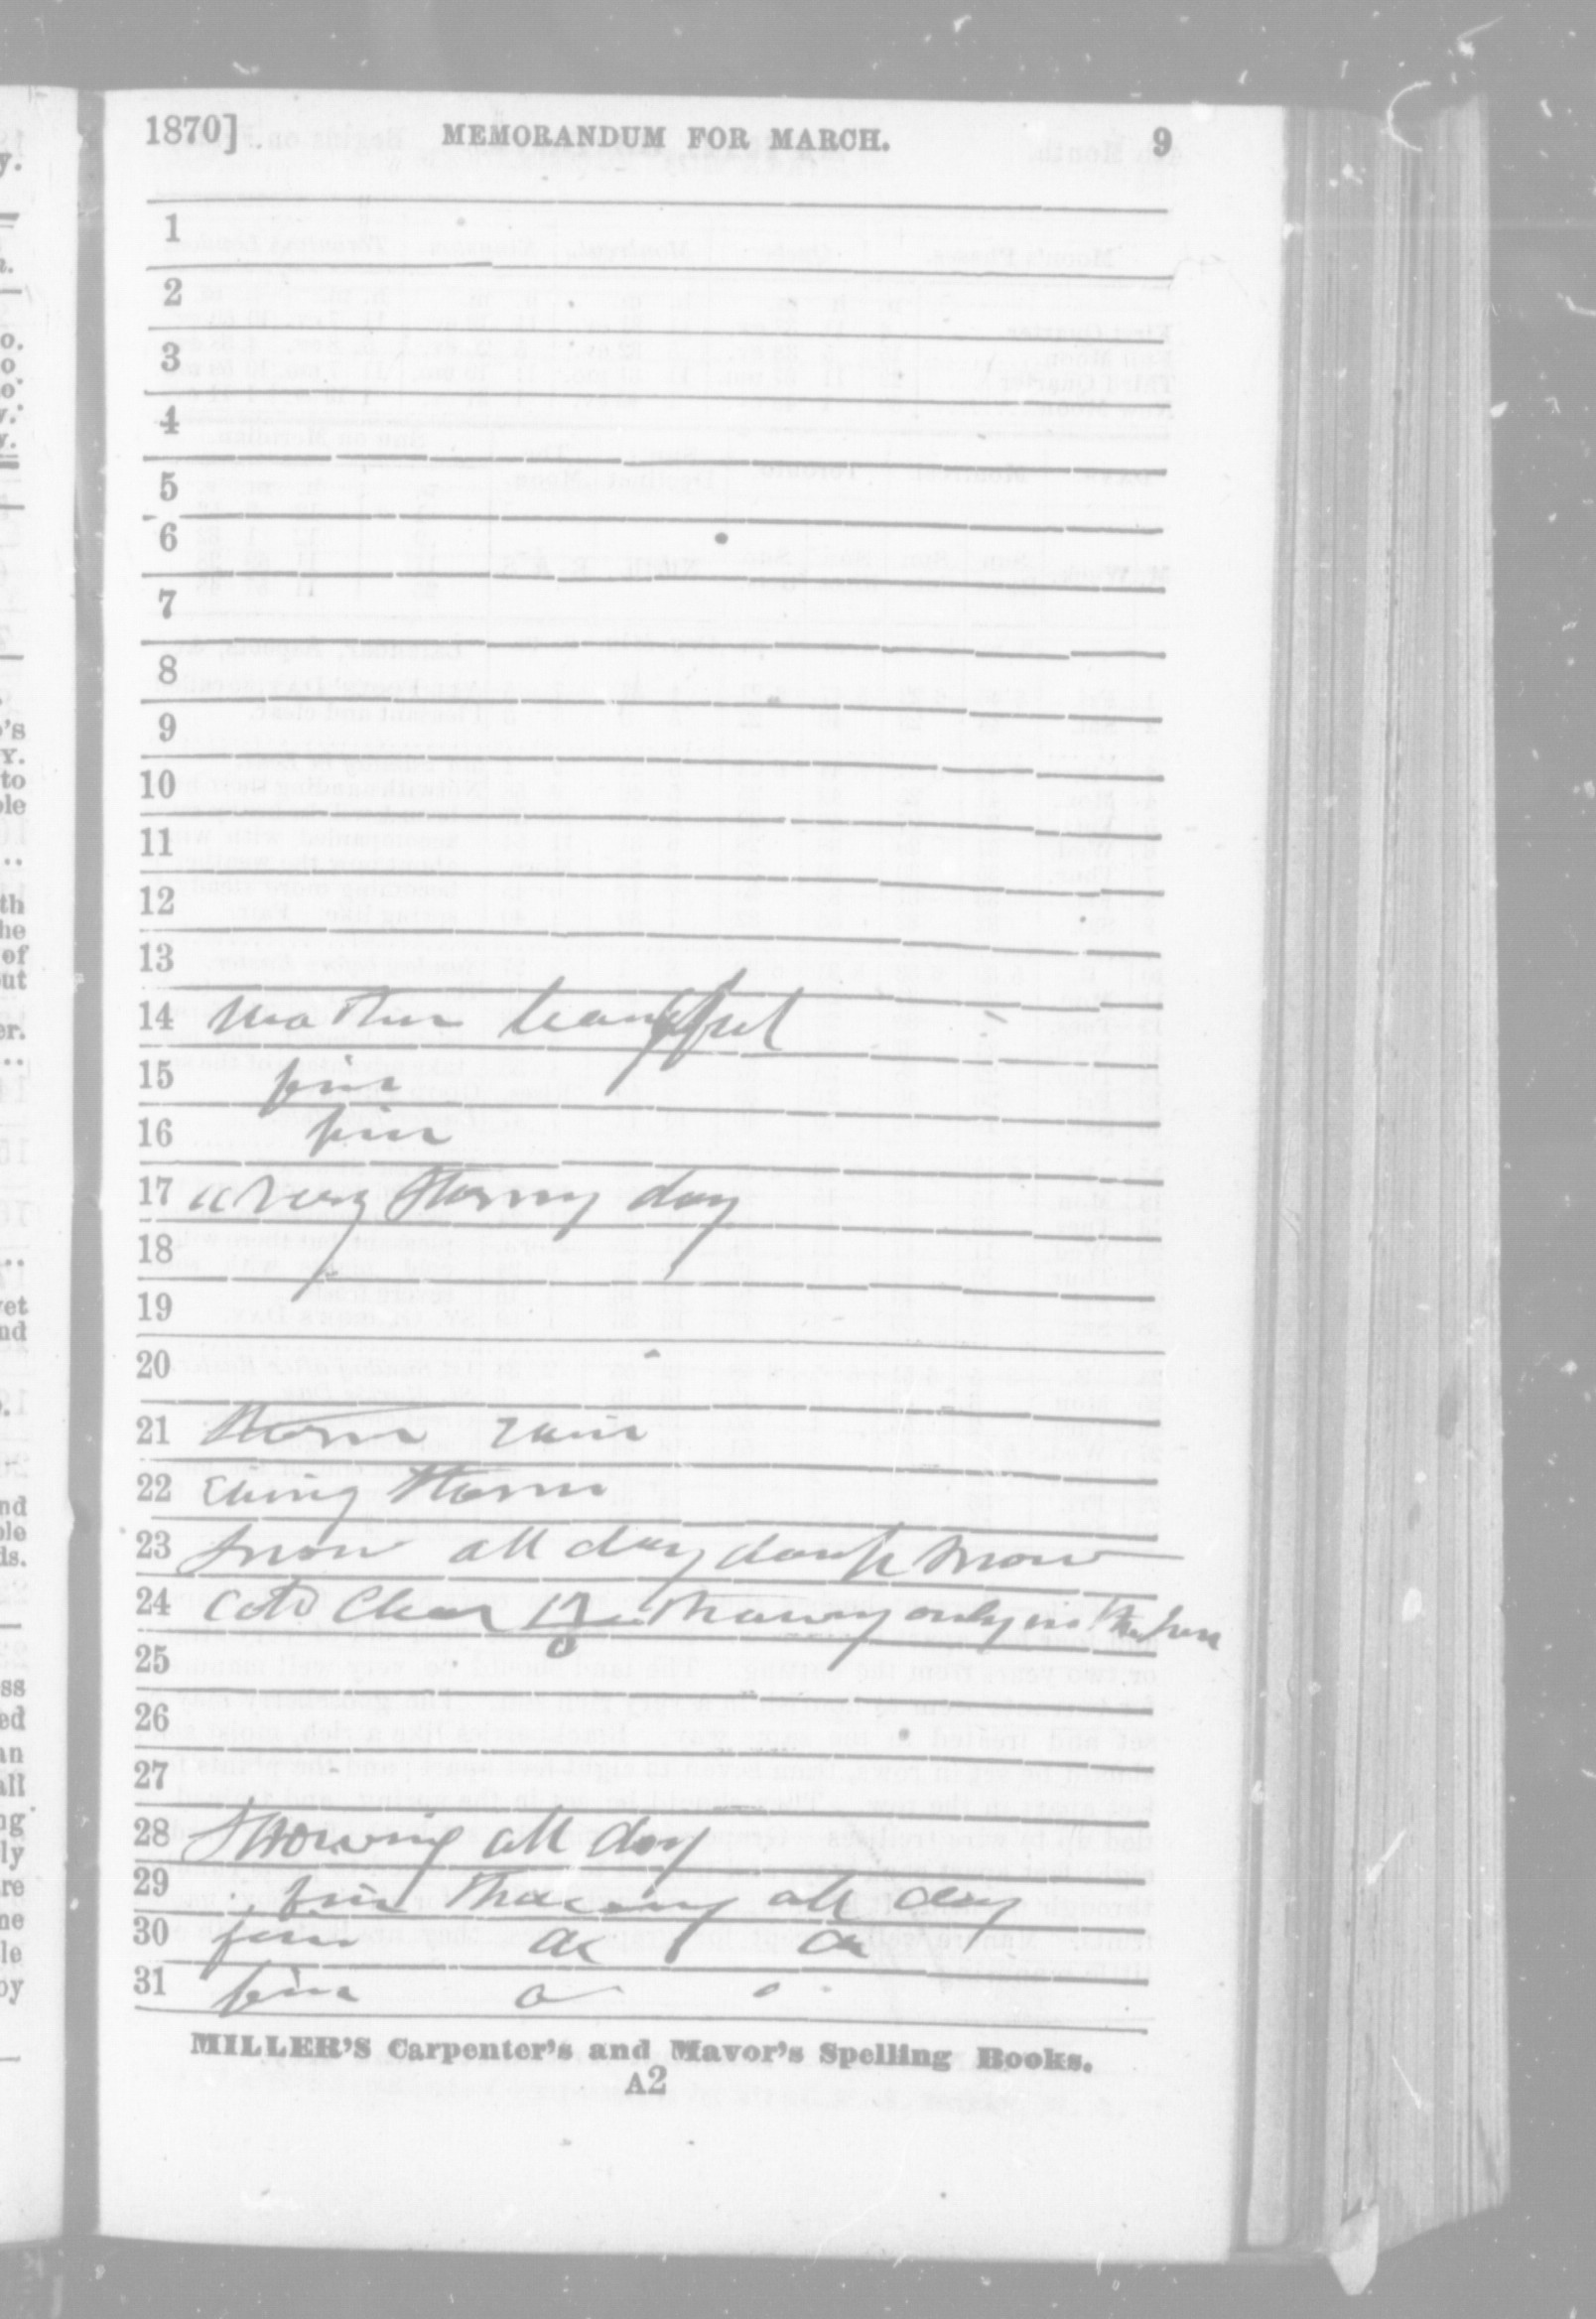 1870] MEMORANDUM FOR MARCH. 9
1
2
3
4
5
6
7
8
9
10
11
12
13
14
15 fine
16 fine
17 a very stormy day
18
19
20
21 Storm rain
22 storm
23 Snow all day damp snow
24 Cold Clear thawing only in the sun
25
26
27
28 all day
29 fine Thawing all day
30 fine
31 fine
MILLER'S Carpenter's and Mavor's Spelling Books.
A2